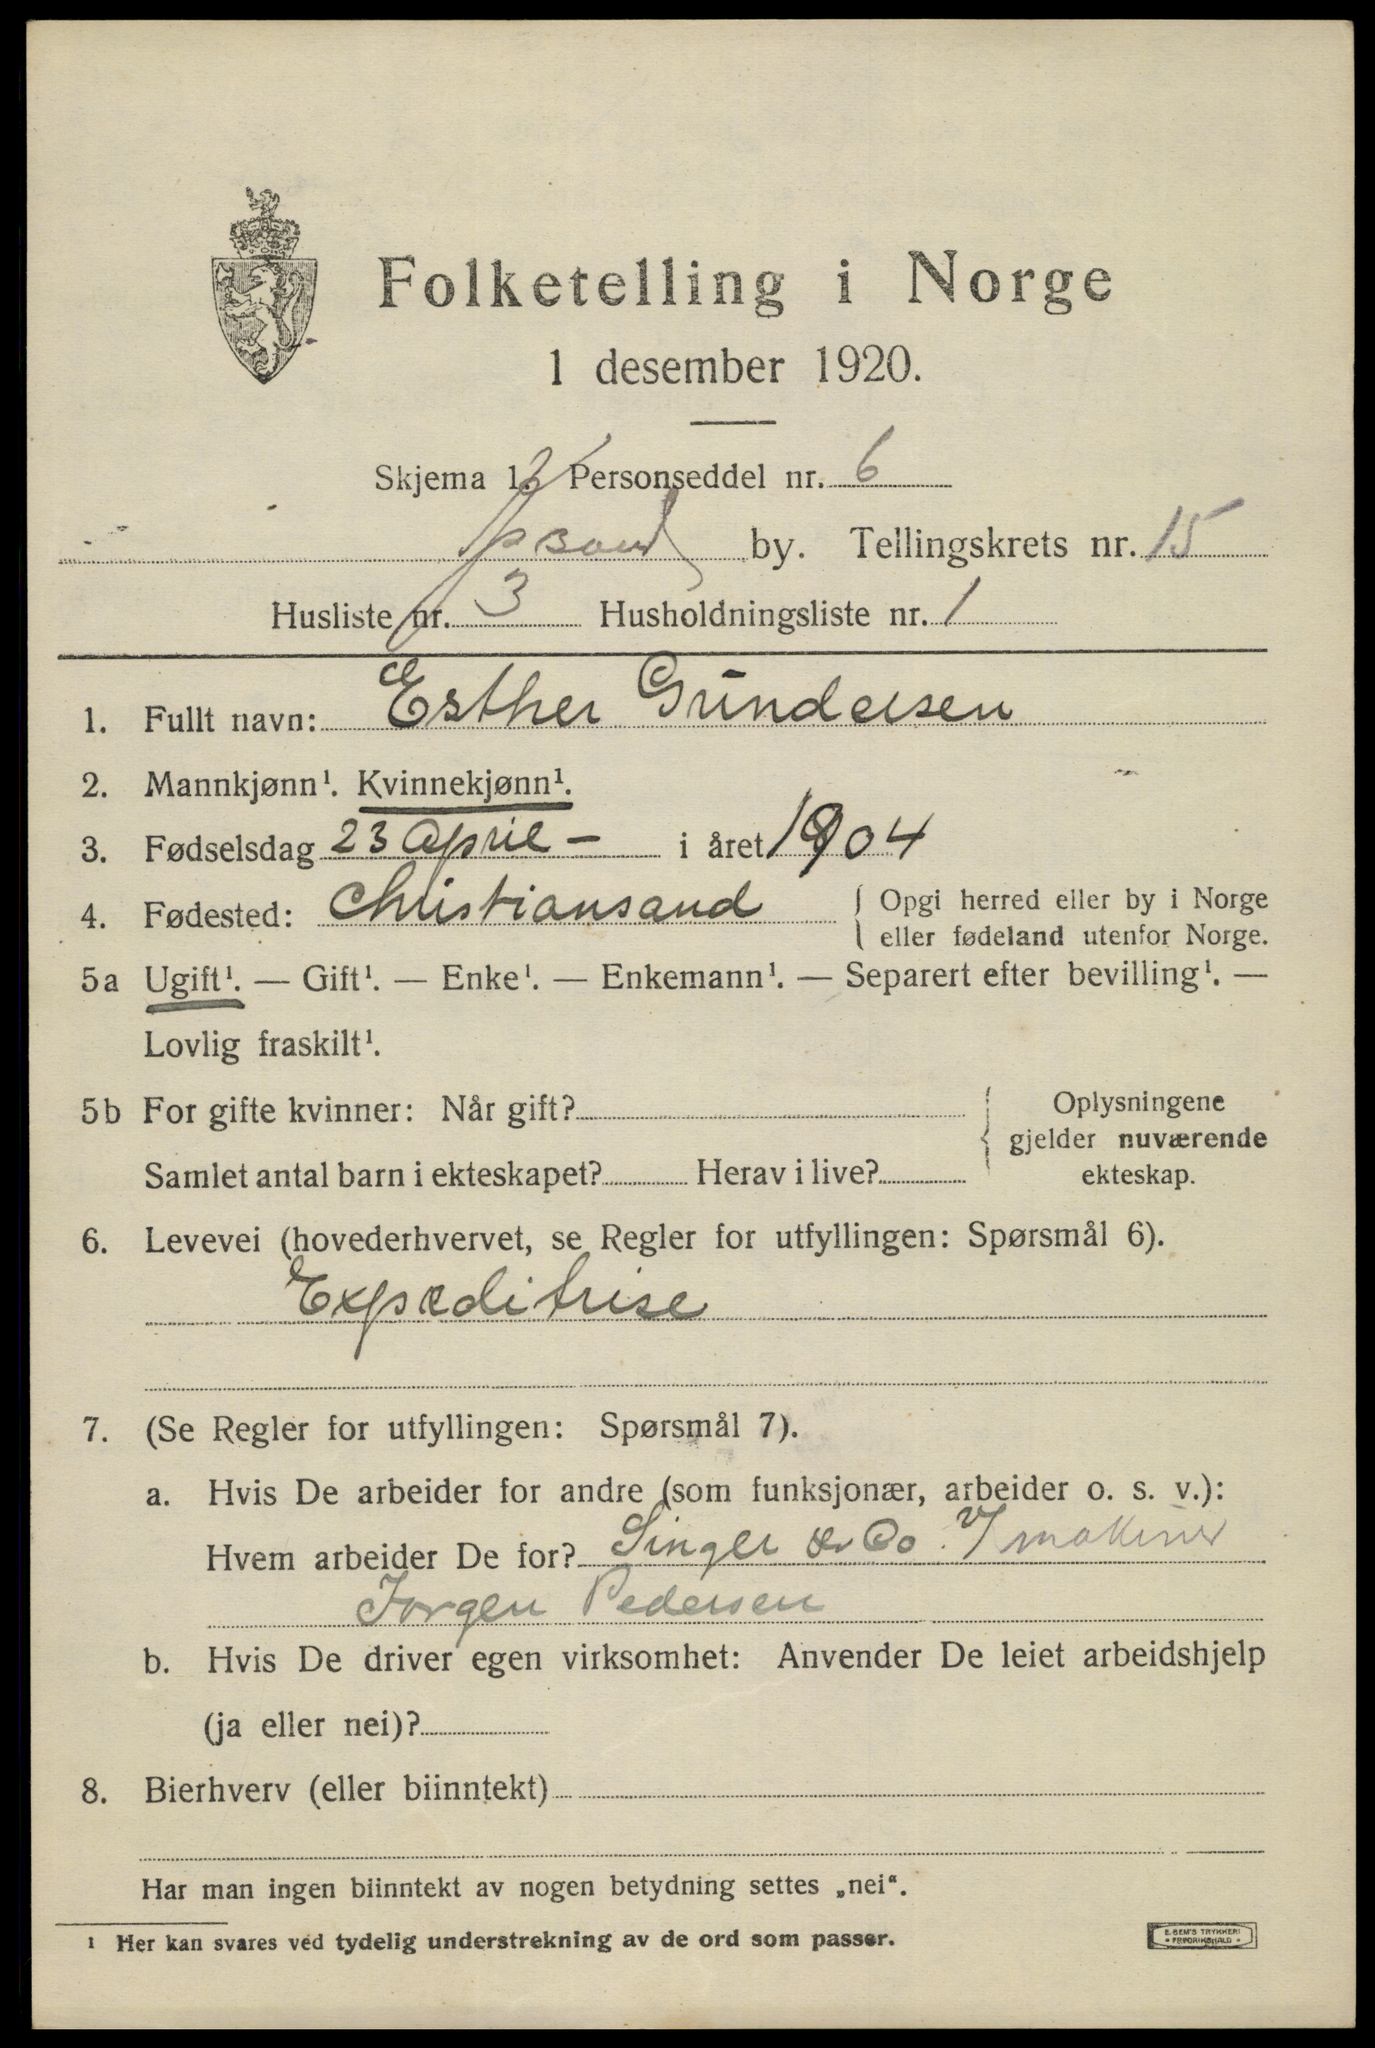 Folketelling i Norge
1 desember 1920.
Skjema 1. Personseddel nr. 6
by. Tellingskrets nr. 15
Husliste nr. 3 Husholdningsliste nr. 1
1. Fullt navn: Esther Gundersen
2. Mannkjønn¹. Kvinnekjønn¹.
3. Fødselsdag 23 April – i året 1904
4. Fødested: Christiansand { Opgi herred eller by i Norge
eller fødeland utenfor Norge.
5a Ugift¹. — Gift¹. — Enke¹. — Enkemann¹. — Separert efter bevilling¹. —
Lovlig fraskilt¹.
5b For gifte kvinner: Når gift? { Oplysningene
gjelder nuværende
Samlet antal barn i ekteskapet? Herav i live? ekteskap.
6. Levevei (hovederhvervet, se Regler for utfyllingen: Spørsmål 6).
Expeditrise
7. (Se Regler for utfyllingen: Spørsmål 7).
a. Hvis De arbeider for andre (som funksjonær, arbeider o. s. v.):
Hvem arbeider De for? Singer & Co.
Jørgen Pedersen
b. Hvis De driver egen virksomhet: Anvender De leiet arbeidshjelp
(ja eller nei)?
8. Bierhverv (eller biinntekt)
Har man ingen biinntekt av nogen betydning settes „nei“.
¹ Her kan svares ved tydelig understrekning av de ord som passer.
E. SEM'S TRYKKERI
• FREDRIKSHALD •